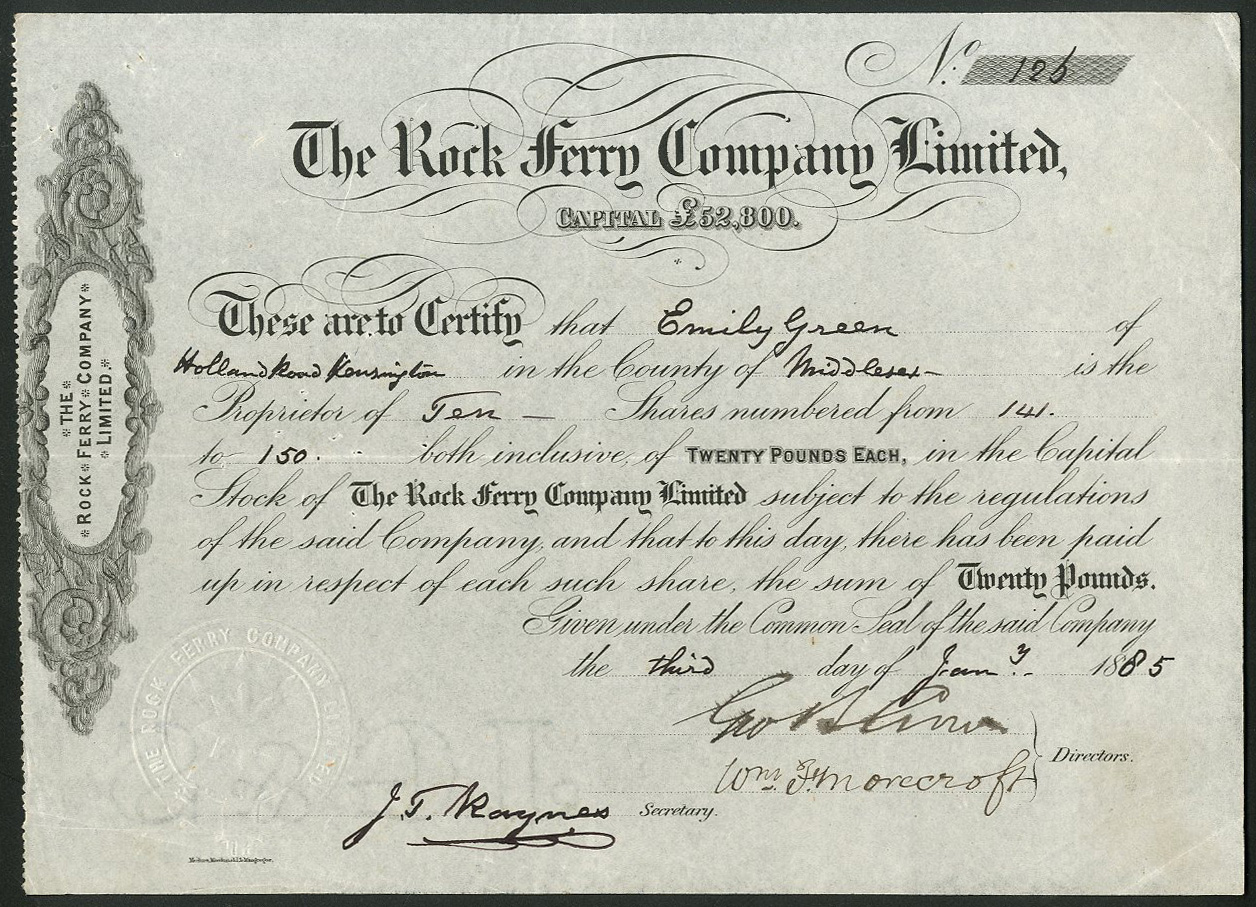 No. 126
The Rock Ferry Company Limited,
CAPITAL £52,800.
THE
ROCK FERRY COMPANY
LIMITED,
These are to Certify that Emily Green of
Holland Road Kensington in the County of Middlesex is the
Proprietor of Ten — Shares numbered from 141.
to 150. both inclusive, of TWENTY POUNDS EACH, in the Capital
Stock of The Rock Ferry Company Limited subject to the regulations
of the said Company, and that to this day, there has been paid
up in respect of each such share, the sum of Twenty Pounds.
Given under the Common Seal of the said Company
the third day of Jany. 1885
THE ROCK FERRY COMPANY LIMITED
Wm. F. Morecroft
Directors.
J. T. Raynes Secretary.